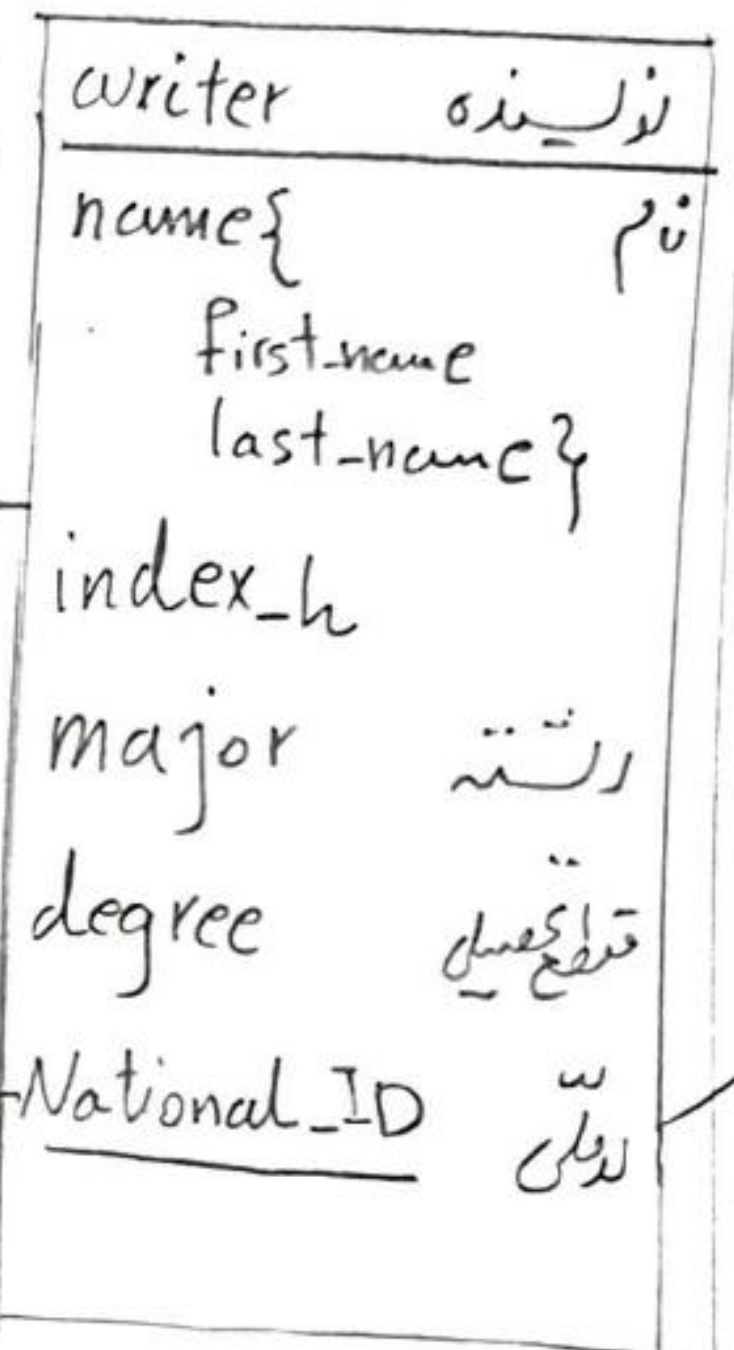 writer نویسنده
name{ نام
first_name
last_name}
index_h
major رشته
degree مقطع تحصیلی
National_ID کدملی